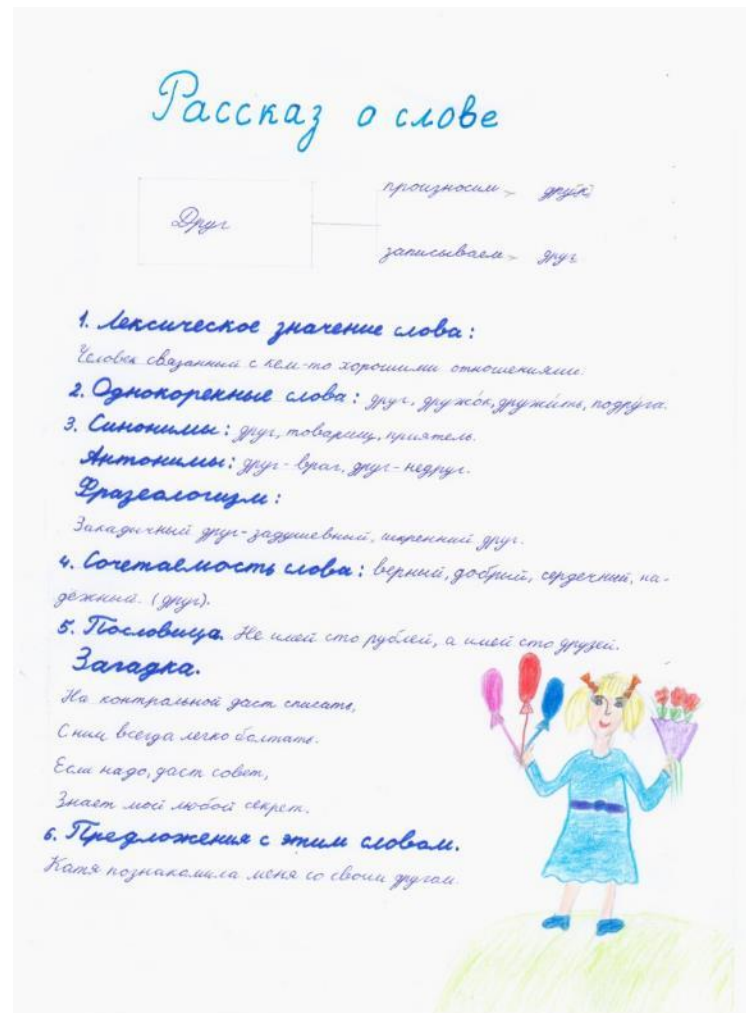 Рассказ о слове
Друг
произносим – друк
записываем – друг
1. Лексическое значение слова:
Человек связанный с кем-то хорошими отношениями.
2. Однокоренные слова: друг, дружо́к, дружи́ть, подру́га.
3. Синонимы: друг, товарищ, приятель.
Антонимы: друг - враг, друг - недруг.
Фразеологизм:
Закадычный друг - задушевный, искренний друг.
4. Сочетаемость слова: верный, добрый, сердечный, на-
дёжный. (друг).
5. Пословица. Не имей сто рублей, а имей сто друзей.
Загадка.
На контрольной даст списать,
С ним всегда легко болтать.
Если надо, даст совет,
Знает мой любой секрет.
6. Предложения с этим словом.
Катя познакомила меня со своим другом.